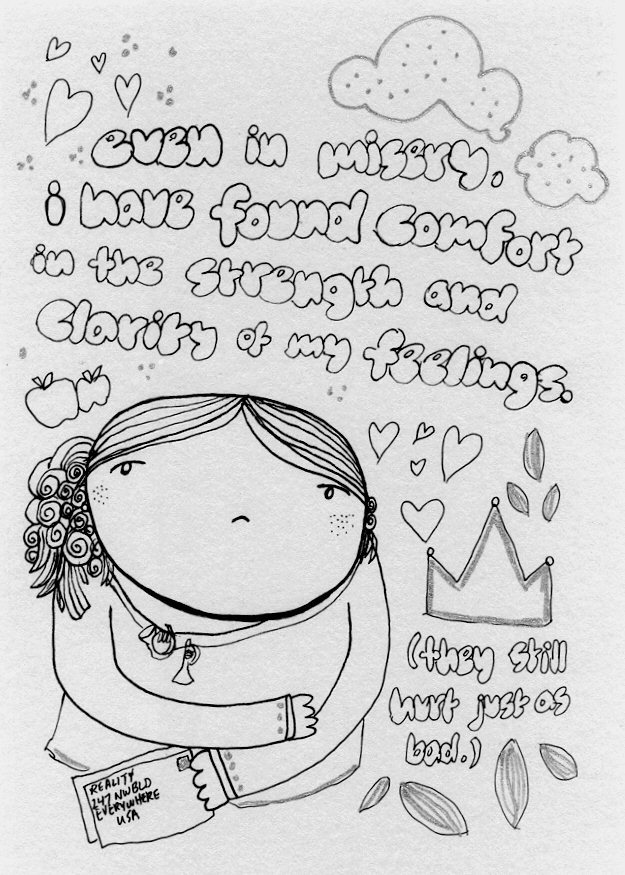 even in misery.
i have found comfort
in the strength and
clarity of my feelings.
(they still
hurt just as
bad.)
REALITY
247 NWBLD
EVERYWHERE
USA